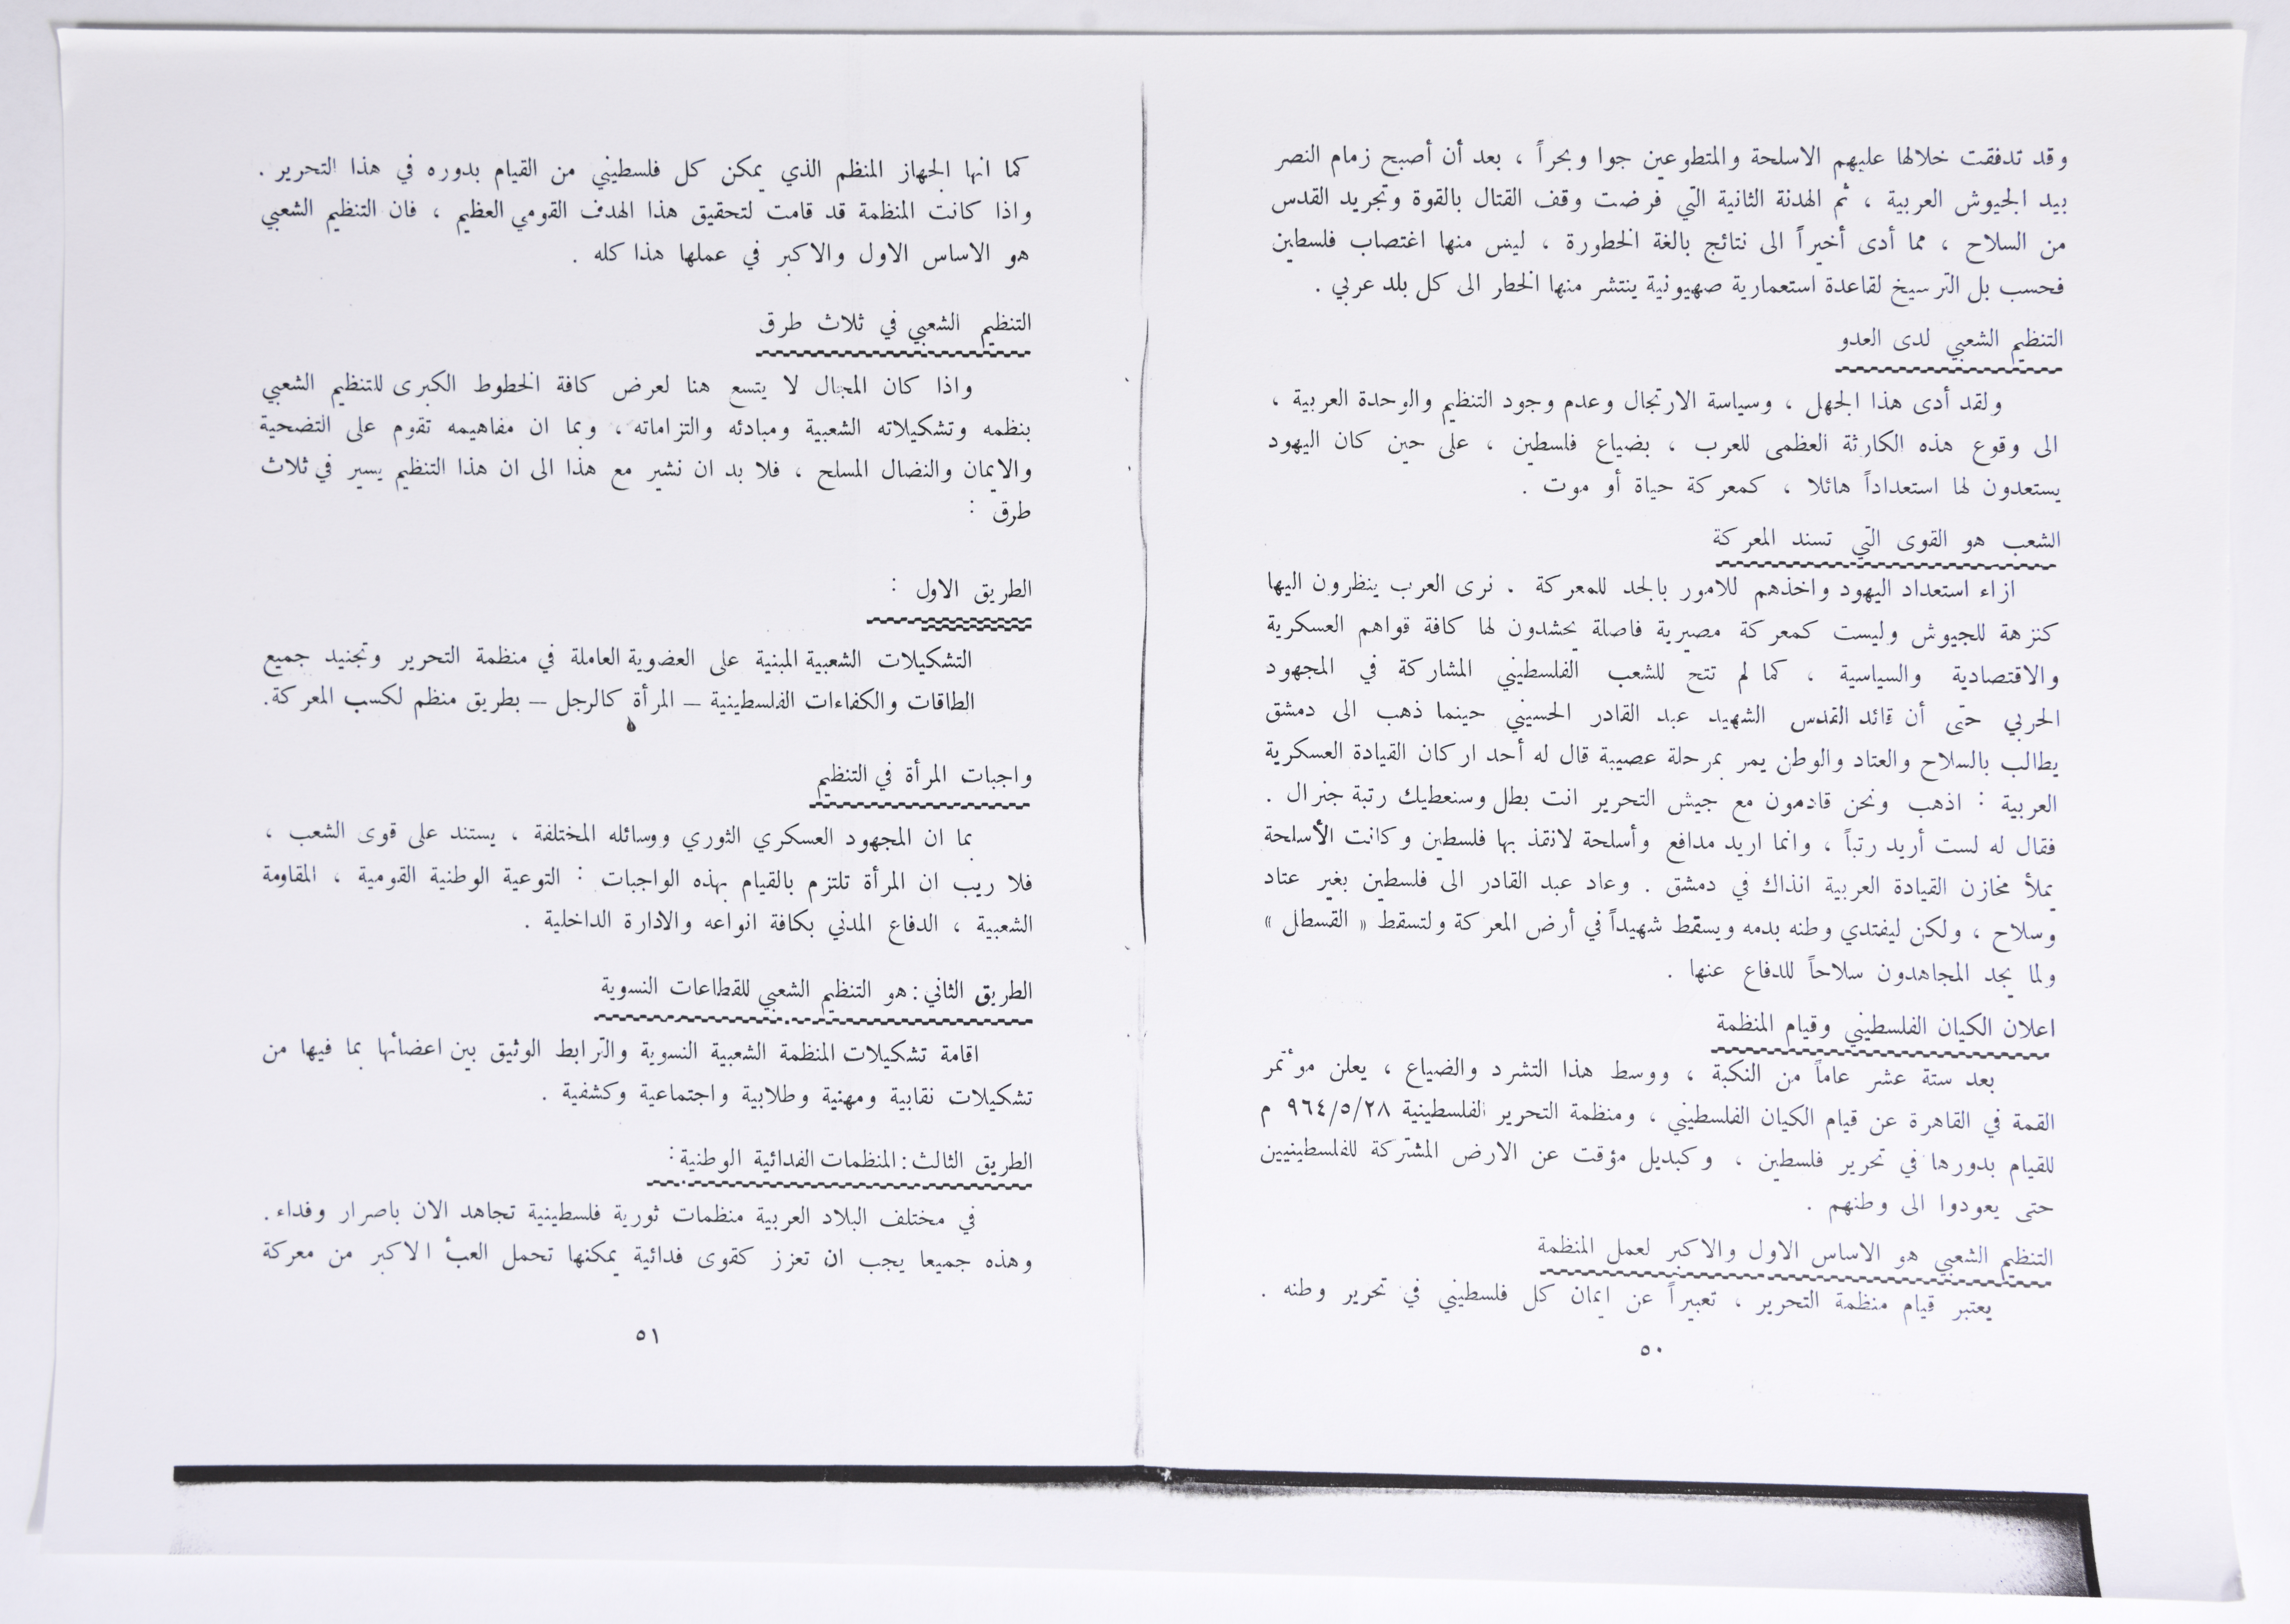 وقد تدفقت خلالها عليهم الاسلحة والمتطوعين جوا وبحراً ، بعد أن أصبح زمام النصر
بيد الجيوش العربية ، ثم الهدنة الثانية التي فرضت وقف القتال بالقوة وتجريد القدس
من السلاح ، مما أدى أخيراً الى نتائج بالغة الخطورة ، ليس منها اغتصاب فلسطين
فحسب بل الترسيخ لقاعدة استعمارية صهيونية ينتشر منها الخطر الى كل بلد عربي .
التنظيم الشعبي لدى العدو
ولقد أدى هذا الجهل ، وسياسة الارتجال وعدم وجود التنظيم والوحدة العربية ،
الى وقوع هذه الكارثة العظمى للعرب ، بضياع فلسطين ، على حين كان اليهود
يستعدون لها استعداداً هائلا ، كمعركة حياة أو موت .
الشعب هو القوى التي تسند المعركة
ازاء استعداد اليهود واخذهم للامور بالجد للمعركة . نرى العرب ينظرون اليها
كنزهة للجيوش وليست كمعركة مصيرية فاصلة يحشدون لها كافة قواهم العسكرية
والاقتصادية والسياسية ، كما لم تتح للشعب الفلسطيني المشاركة في المجهود
الحربي حتى أن قائد القدس الشهيد عبد القادر الحسيني حينما ذهب الى دمشق
يطالب بالسلاح والعتاد والوطن يمر بمرحلة عصيبة قال له أحد اركان القيادة العسكرية
العربية : اذهب ونحن قادمون مع جيش التحرير انت بطل وسنعطيك رتبة جنرال .
فقال له لست أريد رتباً ، وانما اريد مدافع وأسلحة لانقذ بها فلسطين وكانت الأسلحة
يملأ مخازن القيادة العربية انذاك في دمشق . وعاد عبد القادر الى فلسطين بغير عتاد
وسلاح ، ولكن ليفتدي وطنه بدمه ويسقط شهيداً في أرض المعركة ولتسقط « القسطل »
ولما يجد المجاهدون سلاحاً للدفاع عنها .
اعلان الكيان الفلسطيني وقيام المنظمة
بعد ستة عشر عاماً من النكبة ، ووسط هذا التشرد والضياع ، يعلن مؤتمر
القمة في القاهرة عن قيام الكيان الفلسطيني ، ومنظمة التحرير الفلسطينية ٩٦٤/٥/٢٨ م
للقيام بدورها في تحرير فلسطين ، وكبديل مؤقت عن الارض المشتركة للفلسطينيين
حتى يعودوا الى وطنهم .
التنظيم الشعبي هو الاساس الاول والاكبر لعمل المنظمة
يعتبر قيام منظمة التحرير ، تعبيراً عن ايمان كل فلسطيني في تحرير وطنه .
٥٠
كما انها الجهاز المنظم الذي يمكن كل فلسطيني من القيام بدوره في هذا التحرير .
واذا كانت المنظمة قد قامت لتحقيق هذا الهدف القومي العظيم ، فان التنظيم الشعبي
هو الاساس الاول والاكبر في عملها هذا كله .
التنظيم الشعبي في ثلاث طرق
واذا كان المجال لا يتسع هنا لعرض كافة الخطوط الكبرى للتنظيم الشعبي
بنظمه وتشكيلاته الشعبية ومبادئه والتزاماته ، وبما ان مفاهيمه تقوم على التضحية
والايمان والنضال المسلح ، فلا بد ان نشير مع هذا الى ان هذا التنظيم يسير في ثلاث
طرق :
الطريق الاول :
التشكيلات الشعبية المبنية على العضوية العاملة في منظمة التحرير وتجنيد جميع
الطاقات والكفاءات الفلسطينية – المرأة كالرجل – بطريق منظم لكسب المعركة .
واجبات المرأة في التنظيم
بما ان المجهود العسكري الثوري ووسائله المختلفة ، يستند على قوى الشعب ،
فلا ريب ان المرأة تلتزم بالقيام بهذه الواجبات : التوعية الوطنية القومية ، المقاومة
الشعبية ، الدفاع المدني بكافة انواعه والادارة الداخلية .
الطريق الثاني : هو التنظيم الشعبي للقطاعات النسوية
اقامة تشكيلات المنظمة الشعبية النسوية والترابط الوثيق بين اعضائها بما فيها من
تشكيلات نقابية ومهنية وطلابية واجتماعية وكشفية .
الطريق الثالث : المنظمات الفدائية الوطنية :
في مختلف البلاد العربية منظمات ثورية فلسطينية تجاهد الان باصرار وفداء .
وهذه جميعا يجب ان تعزز كقوى فدائية يمكنها تحمل العبأ الاكبر من معركة
٥١